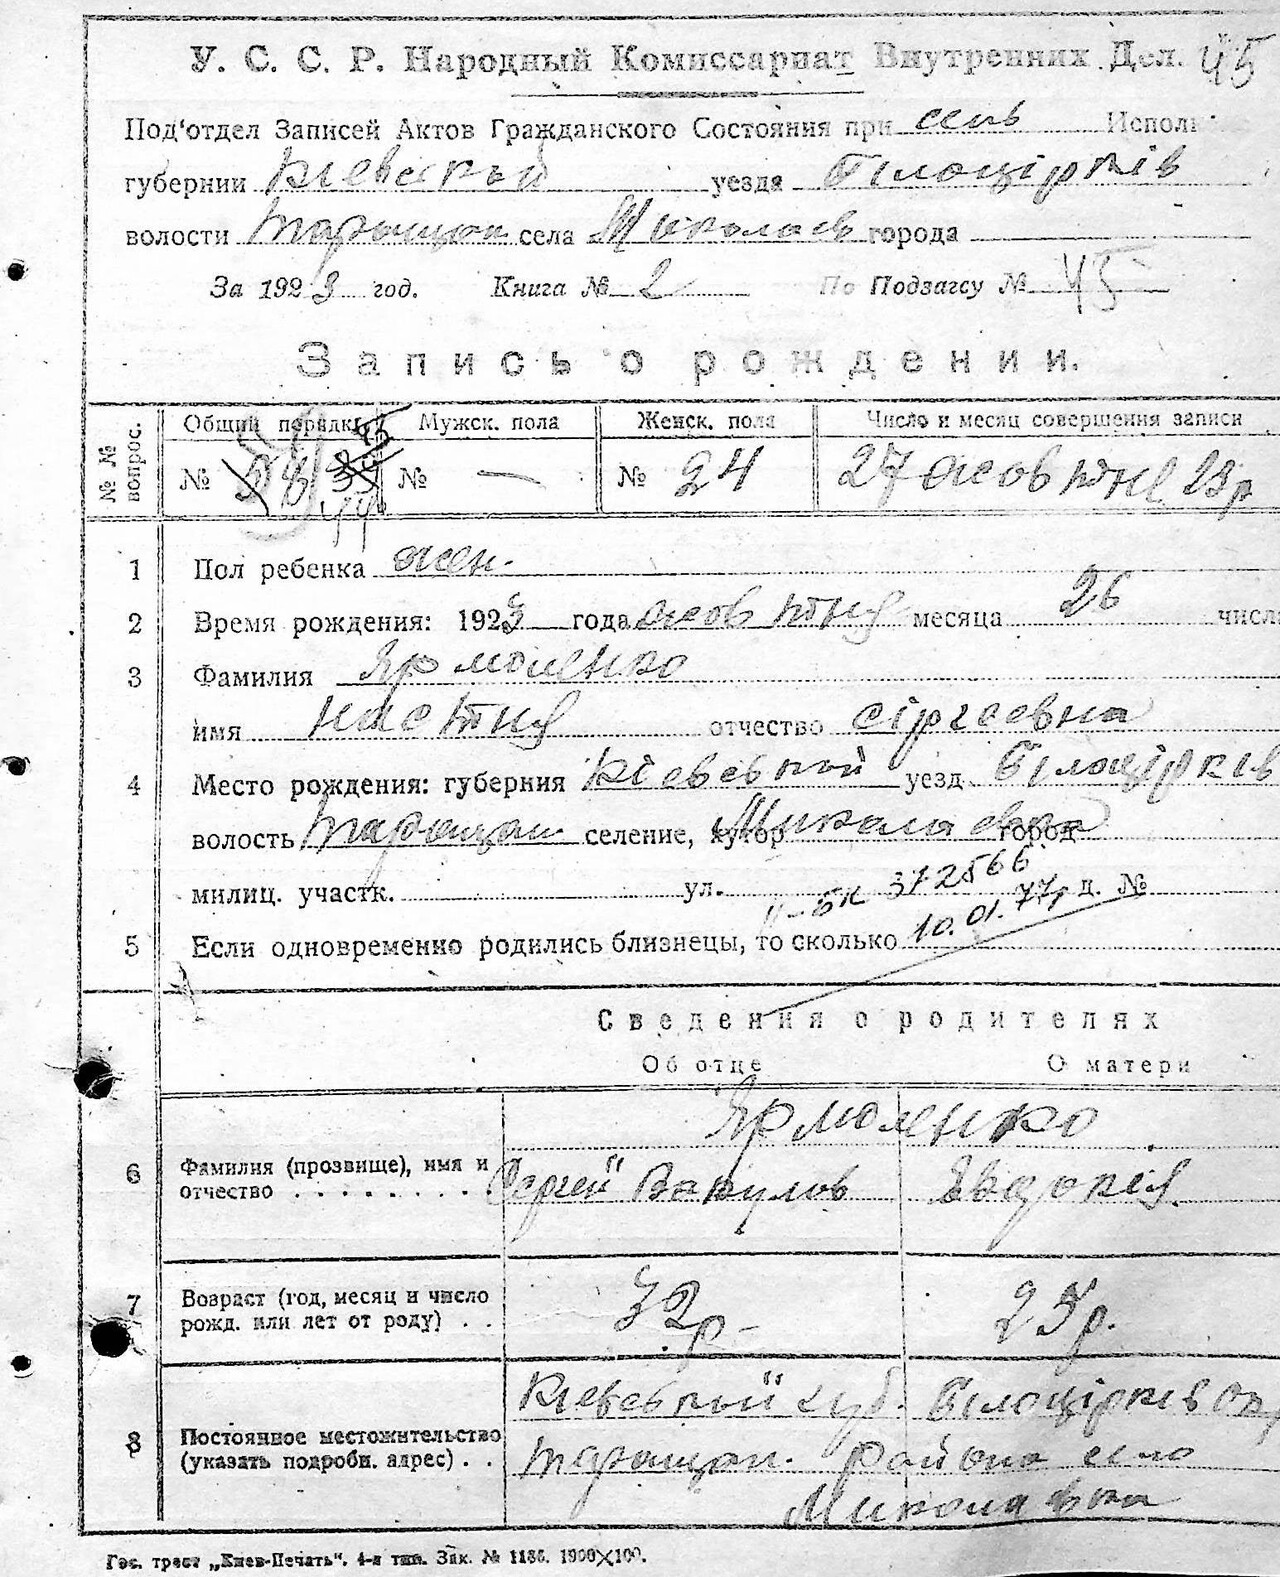 У. С. С. Р. Народный Комиссариат Внутренних Дел. 45
Под'отдел Записей Актов Гражданского Состояния при сель Исполк
губернии Кіевской уезда Білоцірків
волости Таращан села Миколаев города
За 1923 год. Книга № 2 По Подзагсу № 45
Запись о рождении.
№ № вопрос. Общий порядк. Мужск. пола Женск. пола Число и месяц совершения записи
№ 58 44 № — № 24 27 жовтня 23 р
1 Пол ребенка жен.
2 Время рождения: 1923 года жовтня месяца 26 числа
3 Фамилия Ярмоленко
имя Настия отчество Сіргеевна
4 Место рождения: губерния Кіевський уезд Білоцірків
волость Таращан селение, хутор Миколаевка город
милиц. участк. ул. д. №
II-БК 372566
5 Если одновременно родились близнецы, то сколько 10.01.77р
Сведения о родителях
Об отце О матери
Ярмоленко
6 Фамилия (прозвище), имя и Сергей Вакулов Евдокія.
отчество . . . . . . . . .
7 Возраст (год, месяц и число 32р- 25р.
рожд. или лет от роду) . .
Кіевський губ. Білоцірків окр
8 Постоянное местожительство
(указать подробн. адрес) . . Таращан. района село
Миколаевка
Гос. трест „Киев-Печать". 4-я тип. Зак. № 1186. 1000×100.